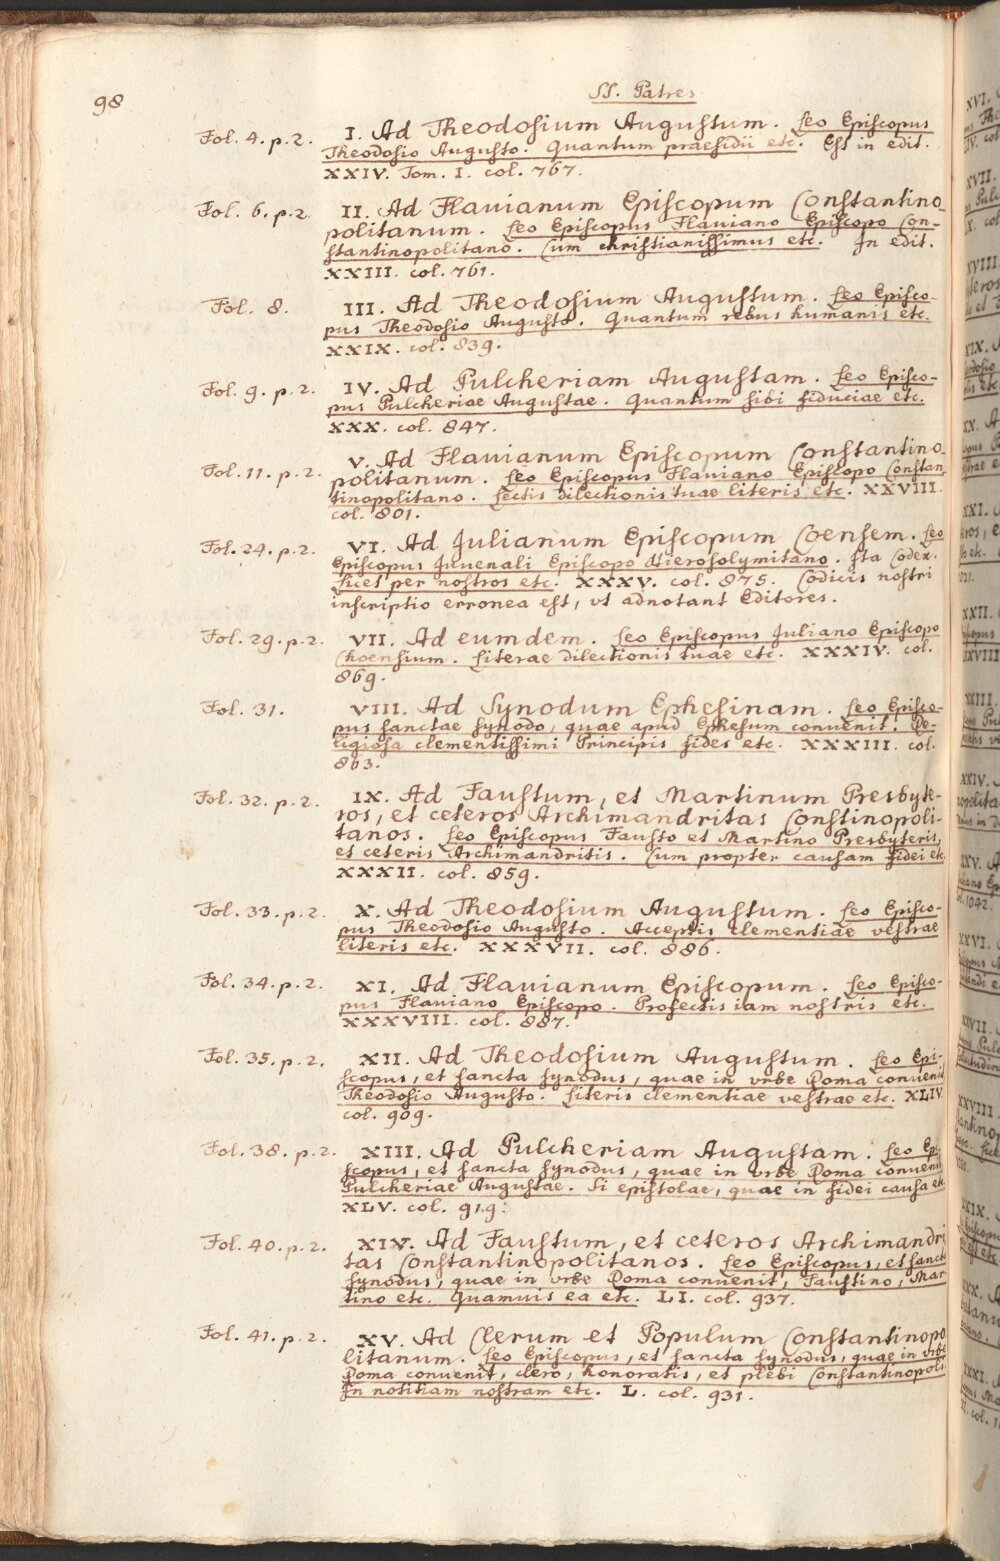 98
SS. Patres
Fol. 4. p. 2. I. Ad Theodosium Augustum. Leo Episcopus
Theodosio Augusto. Quantum praesidii etc. Est in edit.
XXIV. Tom. I. col. 767.
Fol. 6. p. 2 II. Ad Flauianum Episcopum Constantino-
politanum. Leo Episcopus Flauiano Episcopo Con-
stantinopolitano. Cum christianissimus etc. In edit.
XXIII. col. 761.
Fol. 8. III. Ad Theodosium Augustum. Leo Episco-
pus Theodosio Augusto. Quantum rebus humanis etc.
XXIX. col. 839.
Fol. 9. p. 2. IV. Ad Pulcheriam Augustam. Leo Episco-
pus Pulcheriae Augustae. Quantum sibi fiduciae etc.
XXX. col. 847.
Fol. 11. p. 2. V. Ad Flauianum Episcopum Constantino-
politanum. Leo Episcopus Flauiano Episcopo Constan
tinopolitano. Lectis dilectionis tuae literis etc. XXVIII.
col. 801.
Fol. 24. p. 2. VI. Ad Julianum Episcopum Coensem. Leo
Episcopus Juuenali Episcopo Hierosolymitano. Ita Codex.
Licet per nostros etc. XXXV. col. 875. Codicis nostri
inscriptio erronea est, vt adnotant Editores.
Fol. 29. p. 2. VII. Ad eumdem. Leo Episcopus Juliano Episcopo
Choensium. Literae dilectionis tuae etc. XXXIV. col.
869.
Fol. 31. VIII. Ad Synodum Ephesinam. Leo Episco-
pus sanctae synodo, quae apud Ephesum conuenit. Re-
ligiosa clementissimi Principis fides etc. XXXIII. col.
863.
Fol. 32. p. 2. IX. Ad Faustum, et Martinum Presbyte-
ros, et ceteros Archimandritas Constinopoli-
tanos. Leo Episcopus Fausto et Martino Presbyteris,
et ceteris Archimandritis. Cum propter causam fidei etc.
XXXII. col. 859.
Fol. 33. p. 2. X. Ad Theodosium Augustum. Leo Episco-
pus Theodosio Augusto. Acceptis clementiae vestrae
literis etc. XXXVII. col. 886.
Fol. 34. p. 2. XI. Ad Flauianum Episcopum. Leo Episco-
pus Flauiano Episcopo. Profectis iam nostris etc.
XXXVIII. col. 887.
Fol. 35. p. 2. XII. Ad Theodosium Augustum. Leo Epi-
scopus, et sancta synodus, quae in vrbe Roma conuenit
Theodosio Augusto. Literis clementiae vestrae etc. XLIV.
col. 909.
Fol. 38. p. 2. XIII. Ad Pulcheriam Augustam. Leo Epi-
scopus, et sancta synodus, quae in vrbe Roma conuenit
Pulcheriae Augustae. Si epistolae, quae in fidei causa etc.
XLV. col. 919.
Fol. 40. p. 2. XIV. Ad Faustum, et ceteros Archimandri
tas Constantinopolitanos. Leo Episcopus, et sancta
synodus, quae in vrbe Roma conuenit, Faustino, Mar
tino etc. Quamuis ea etc. LI. col. 937.
Fol. 41. p. 2. XV. Ad Clerum et Populum Constantinopo
litanum. Leo Episcopus, et sancta synodus, quae in vrbe
Roma conuenit, clero, honoratis, et plebi Constantinopoli.
In notitiam nostram etc. L. col. 931.